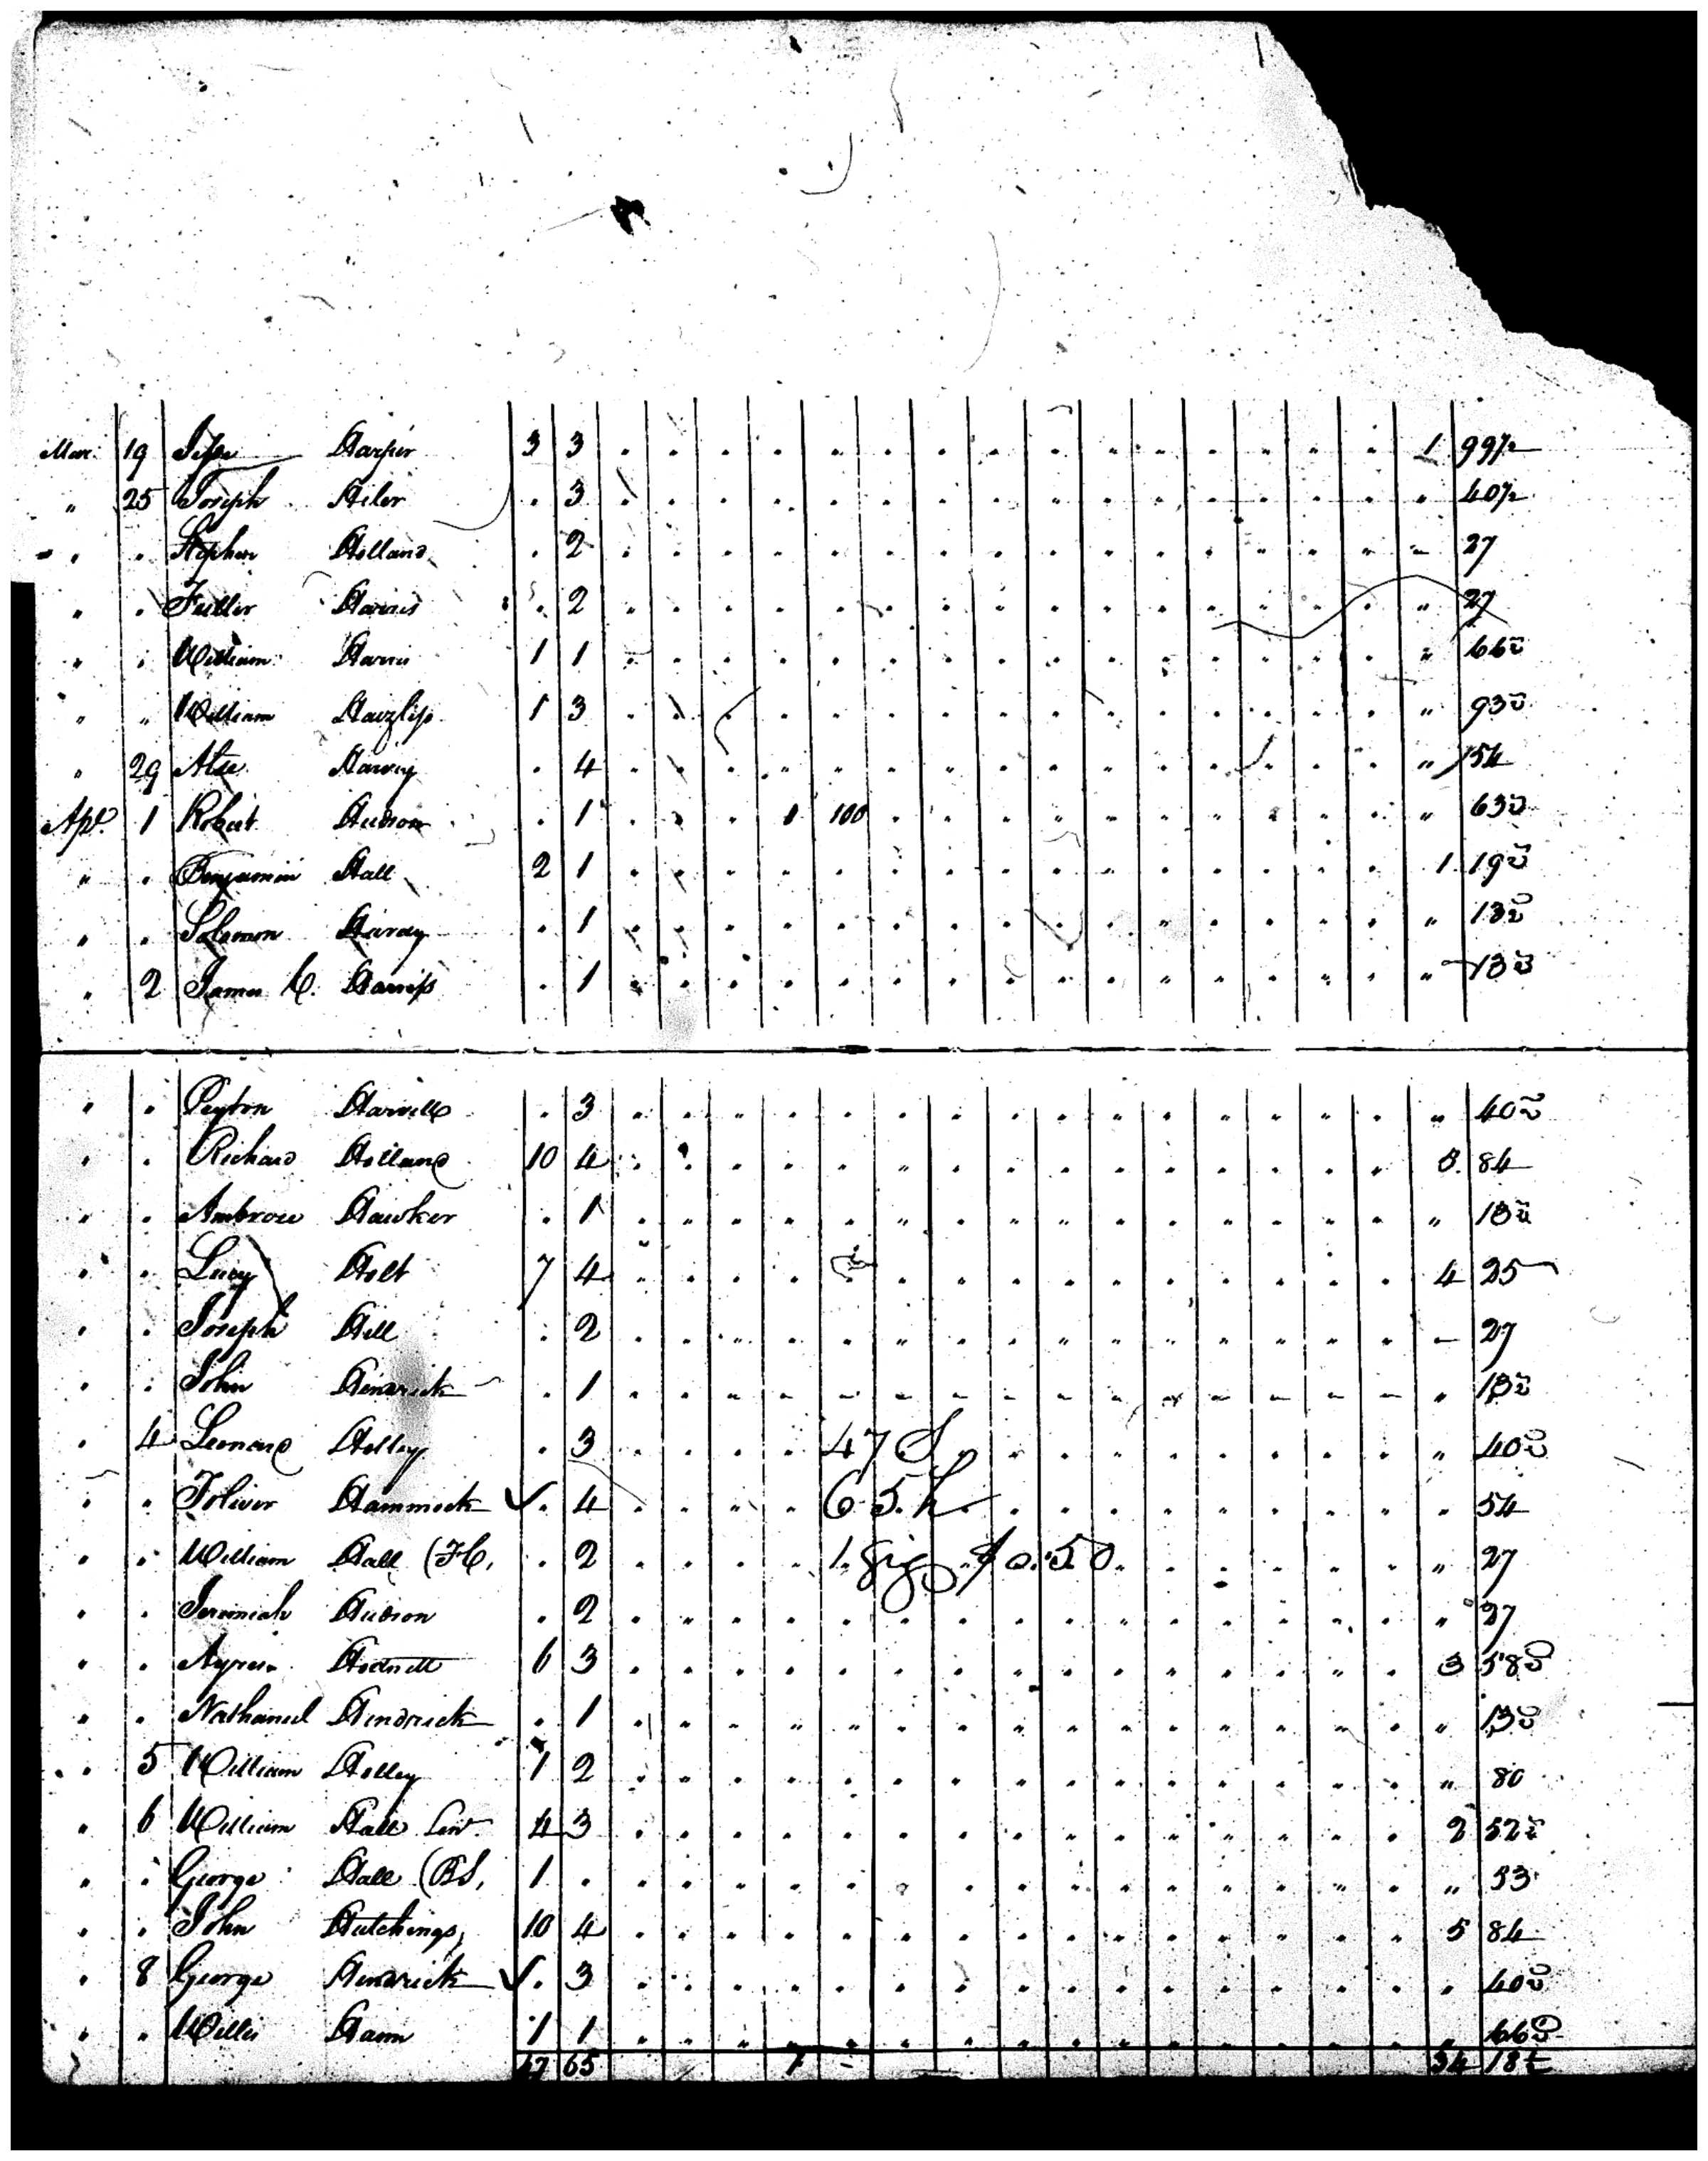 Mar. 19 Jesse Harper 3 3 1 99 1/2
" 25 Joseph Hiler . 3 " 40 1/2
" " Stephen Holland . 2 " 27
" " Fuller Harris . 2 " 27
" " William Harris 1 1 " 66 1/2
" " William Haizlip 1 3 " 93 1/2
" 29 Harvey . 4 " 54
Apl. 1 Robert Hudson . 1 1 100 " 63 1/2
" " Benjamin Hall 2 1 1 19 1/2
" " Solomon . 1 " 13 1/2
" 2 James C. Harriss . 1 " 13 1/2
" " Peyton Harvill . 3 " 40 1/2
" " Richard Holland 10 4 5 84
" " Ambrose Hawker . 1 " 13 1/2
" " Lucy Holt 7 4 4 25
" " Joseph Hill . 2 — 27
" " John Hendrick . 1 " 13 1/2
" 4 Leonard Holley . 3 47 S " 40 1/2
" " Toliver Hammock ✓ . 4 65. h " 54
" " William Hall (FC, . 2 1. gig $0.50 " 27
" " Jeremiah Hudson . 2 " 27
" " Ayres Hodnett 6 3 3 58 1/2
" " Nathaniel Hendrick . 1 " 13 1/2
" 5 William Holley 1 2 " 80
" 6 William Hall Senr. 4 3 2 52 1/2
" " George Hall (BS, 1 . " 53
" " John Hutchings 10 4 5 84
" 8 George Hendrick ✓ . 3 " 40 1/2
" " Willis Hamm 1 1 " 66 1/2
47 65 1 34 18 1/2